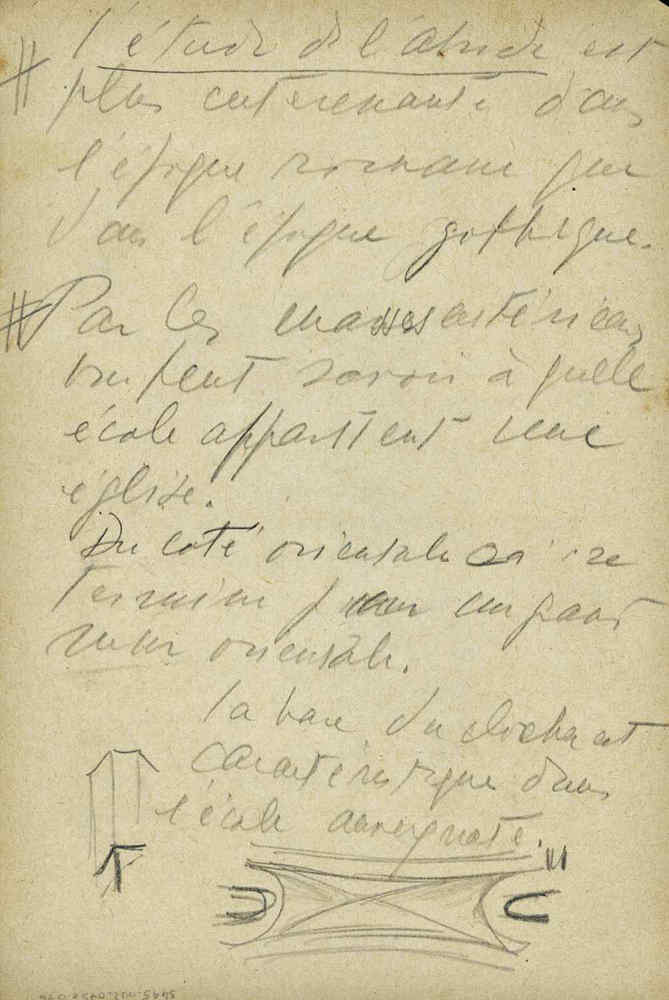 l'étude de l'abside est
plus interessante dans
l'époque romane que
dans l'époque gothique.
Par les masses extérieures
on peut savoir à quelle
école appartient une
église.
Du coté orientale on se
termine par un grand
mur orientale.
la base du clocher est
caractéristique dans
l'école auvergnate.